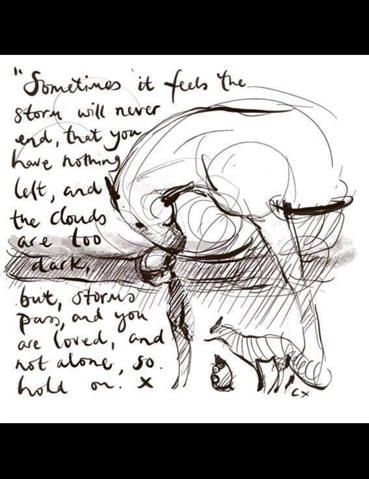 "Sometimes it feels the
storm will never
end, that you
have nothing
left, and
the clouds
are too
dark,
but, storms
pass, and you
are loved, and
not alone, so.
hold on. x
cx